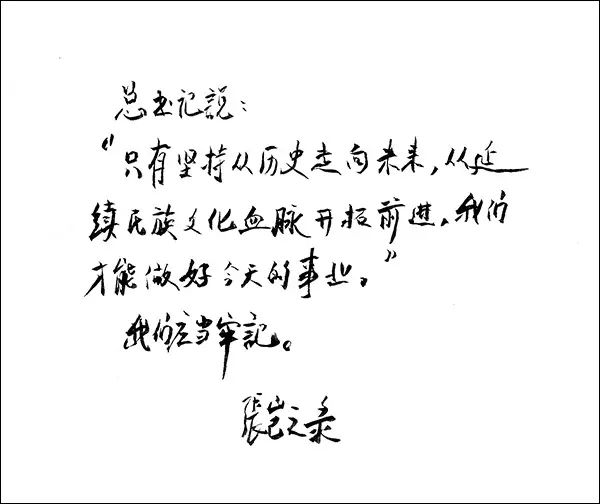 总书记説：
“只有坚持从历史走向未来，从延
續民族文化血脉开拓前进，我们
才能做好今天的事业。”
我们应当牢记。
張岂之录